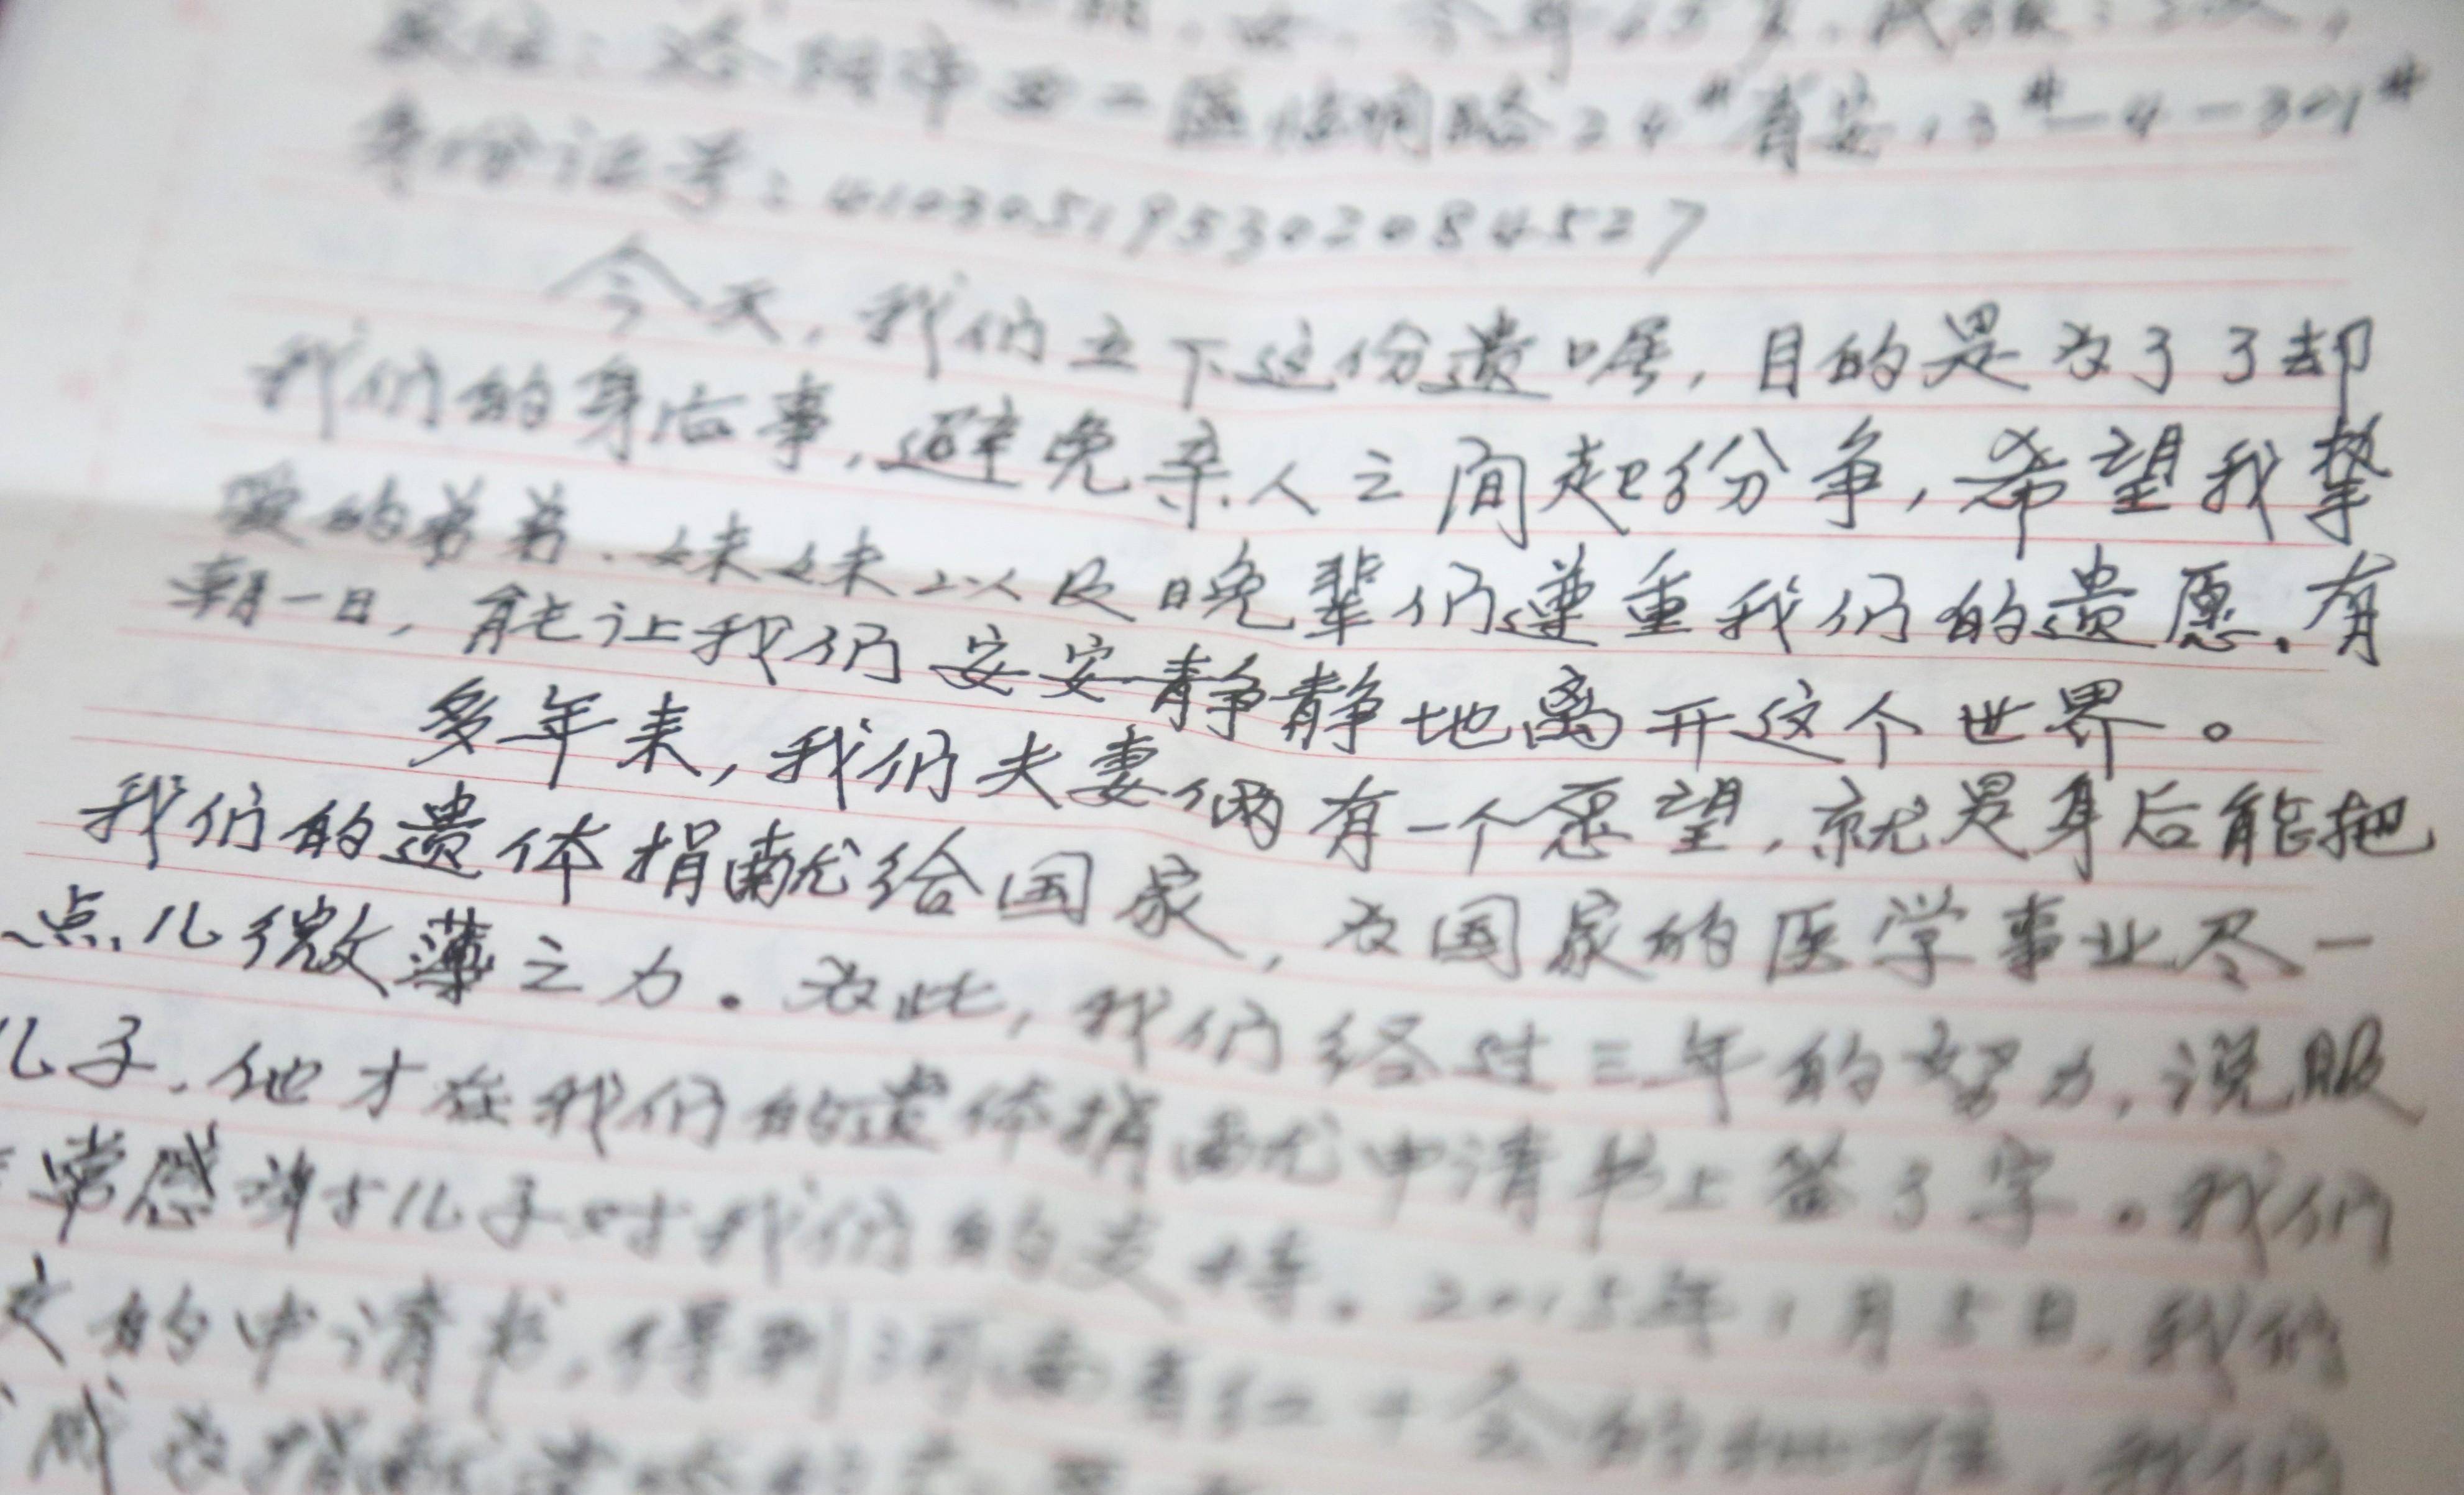 女，今年65岁，民族：汉族，
现住：洛阳市 24# 13#-4-301#
身份证号：410305195302084527
今天，我们立下这份遗嘱，目的是为了了却
我们的身后事，避免亲人之间起份争，希望我挚
爱的弟弟、妹妹以及晚辈们遵重我们的遗愿，有
朝一日，能让我们安安静静地离开这个世界。
多年来，我们夫妻俩有一个愿望，就是身后能把
我们的遗体捐献给国家，为国家的医学事业尽一
点儿微薄之力。为此，我们经过三年的努力，说服
儿子，他才在我们的遗体捐献申请书上签了字。我们
常感谢儿子对我们的支持。2015年1月5日，我们
交的申请书，得到河南省红十会的批准，我们
成为捐献